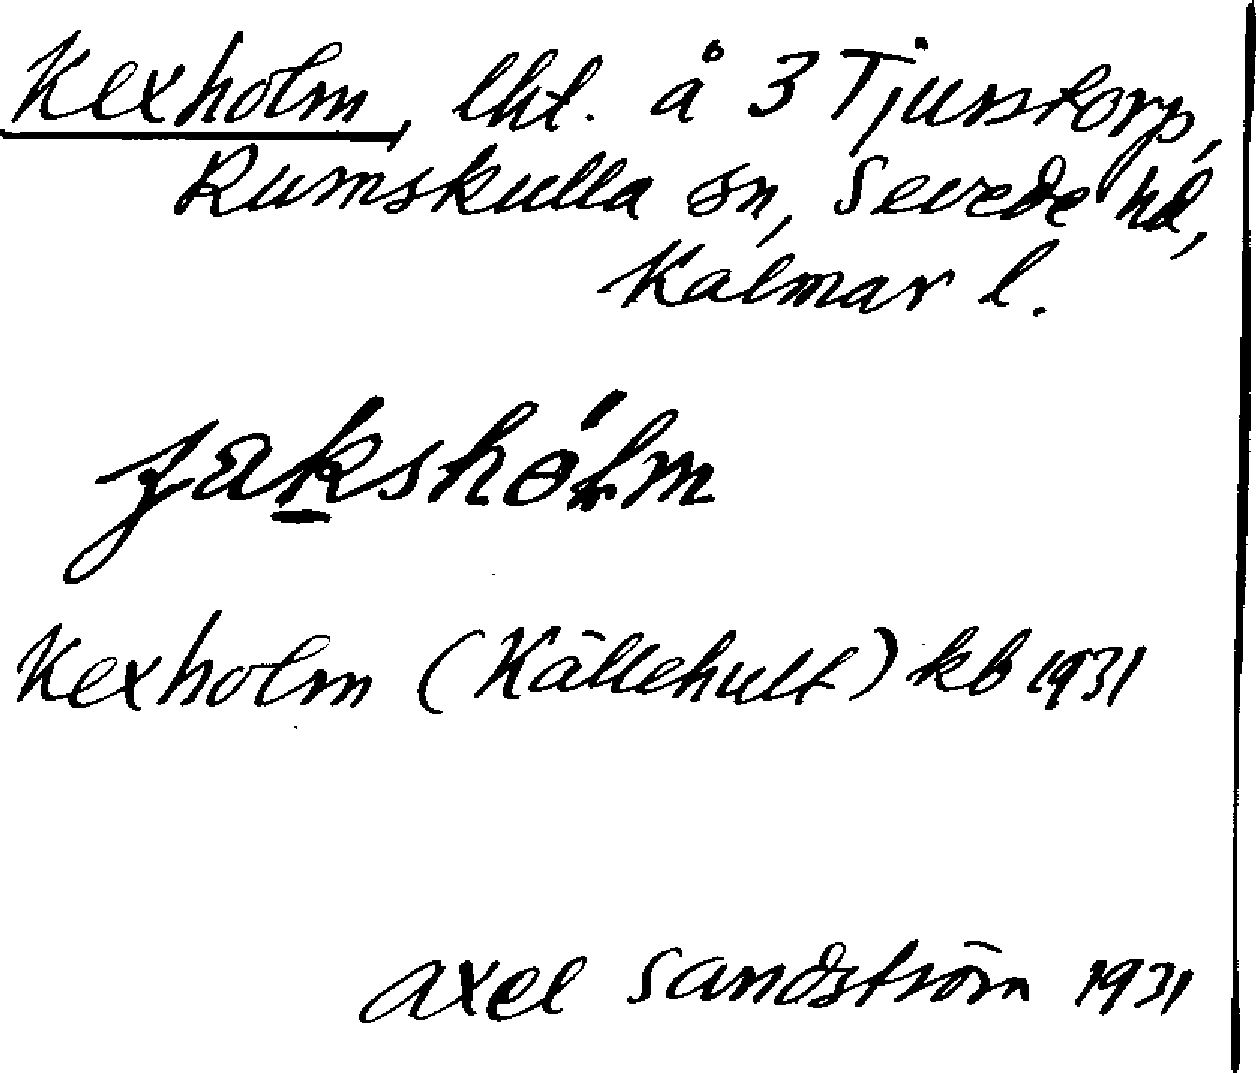 Kexholm, lht. å 3 Tjusstorp,
Rumskulla sn, Sevede hd,
Kalmar l.
Kexholm (Källehult) kb 1931
Axel Sandström 1931